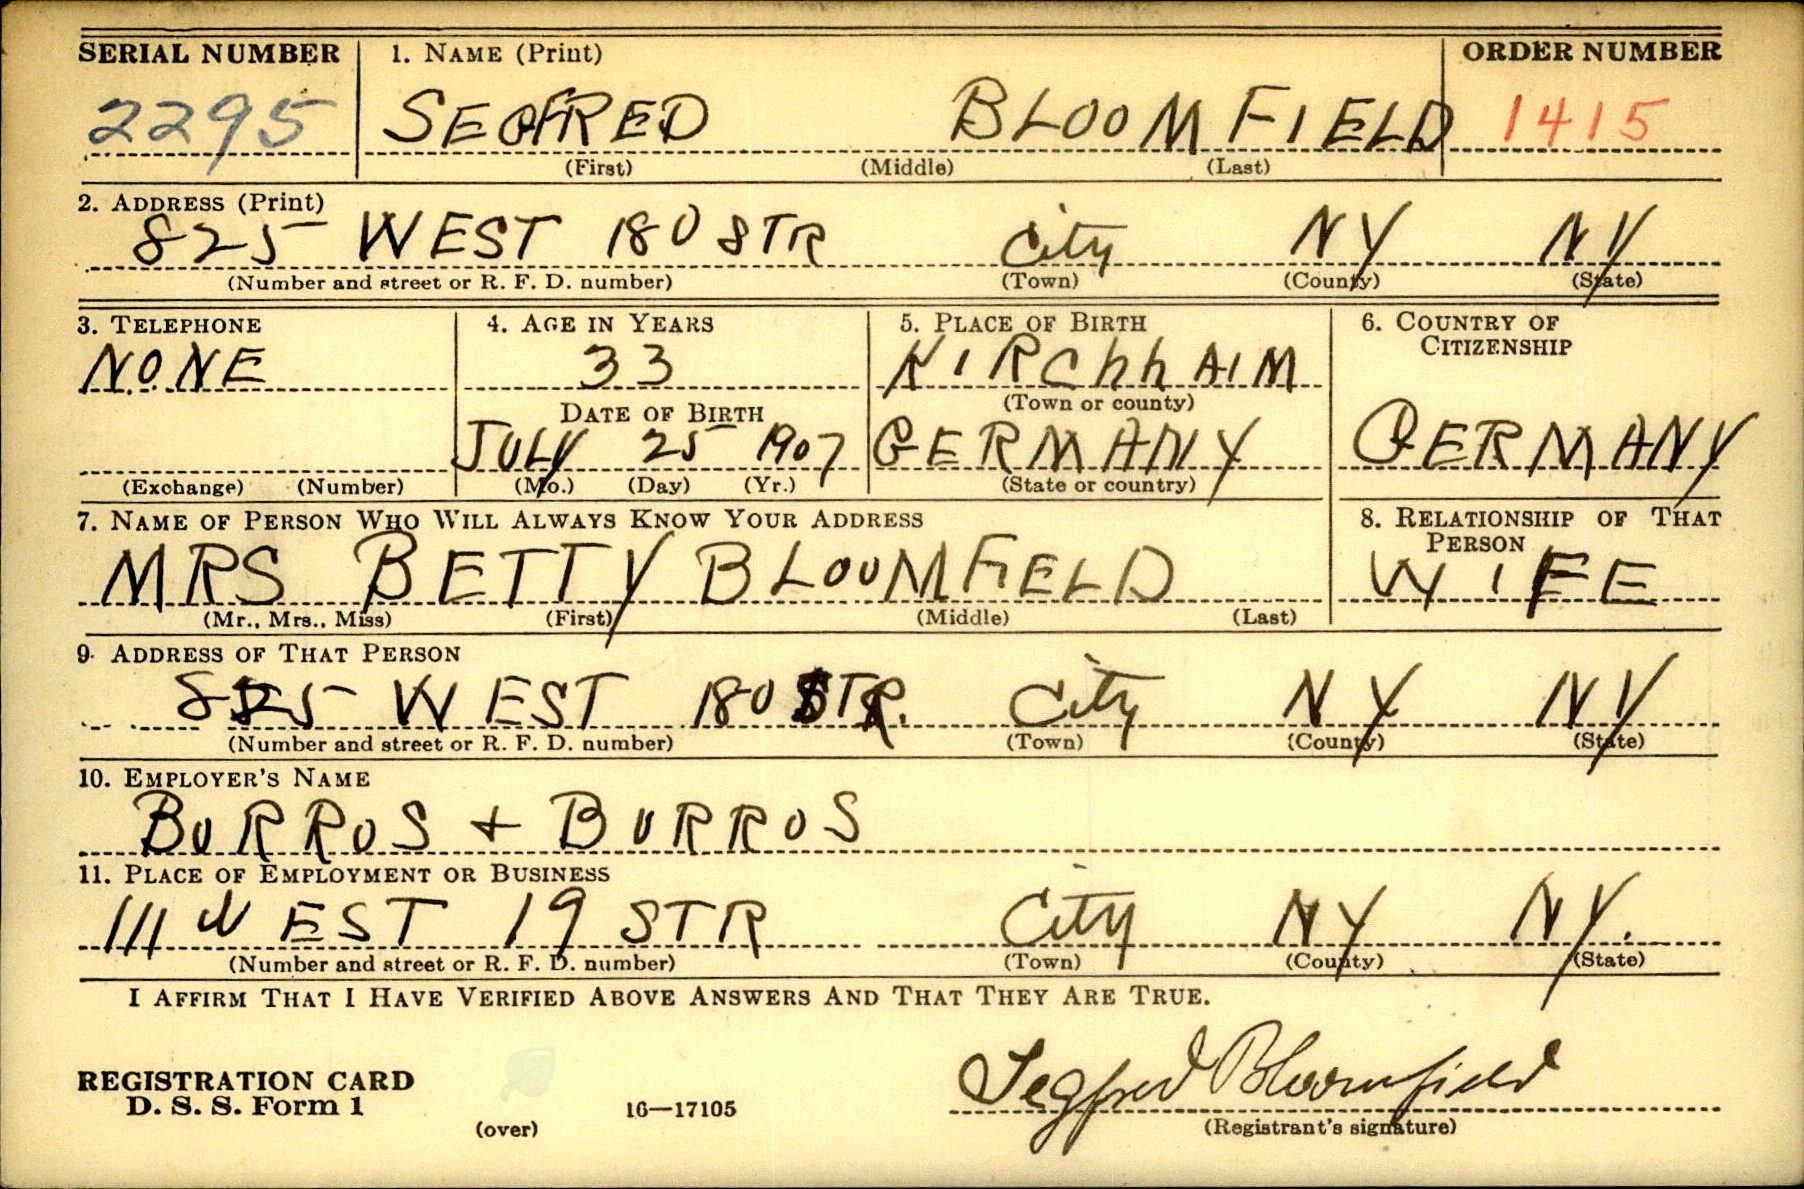 SERIAL NUMBER 1. NAME (Print) ORDER NUMBER
2295 SEGFRED BLOOMFIELD 1415
(First) (Middle) (Last)
2. ADDRESS (Print)
825 WEST 180 STR City NY NY
(Number and street or R. F. D. number) (Town) (County) (State)
3. TELEPHONE 4. AGE IN YEARS 5. PLACE OF BIRTH 6. COUNTRY OF CITIZENSHIP
NONE 33 KIRChhAIM
DATE OF BIRTH (Town or county)
JULY 25 1907 GERMANY GERMANY
(Exchange) (Number) (Mo.) (Day) (Yr.) (State or country)
7. NAME OF PERSON WHO WILL ALWAYS KNOW YOUR ADDRESS 8. RELATIONSHIP OF THAT PERSON
MRS BETTY BLOOMFIELD WIFE
(Mr., Mrs., Miss) (First) (Middle) (Last)
9. ADDRESS OF THAT PERSON
825 WEST 180 STR. City NY NY
(Number and street or R. F. D. number) (Town) (County) (State)
10. EMPLOYER'S NAME
BURROS + BURROS
11. PLACE OF EMPLOYMENT OR BUSINESS
111 WEST 19 STR City NY NY.
(Number and street or R. F. D. number) (Town) (County) (State)
I AFFIRM THAT I HAVE VERIFIED ABOVE ANSWERS AND THAT THEY ARE TRUE.
Segfred Bloomfield
REGISTRATION CARD
D. S. S. Form 1 16—17105
(over) (Registrant's signature)